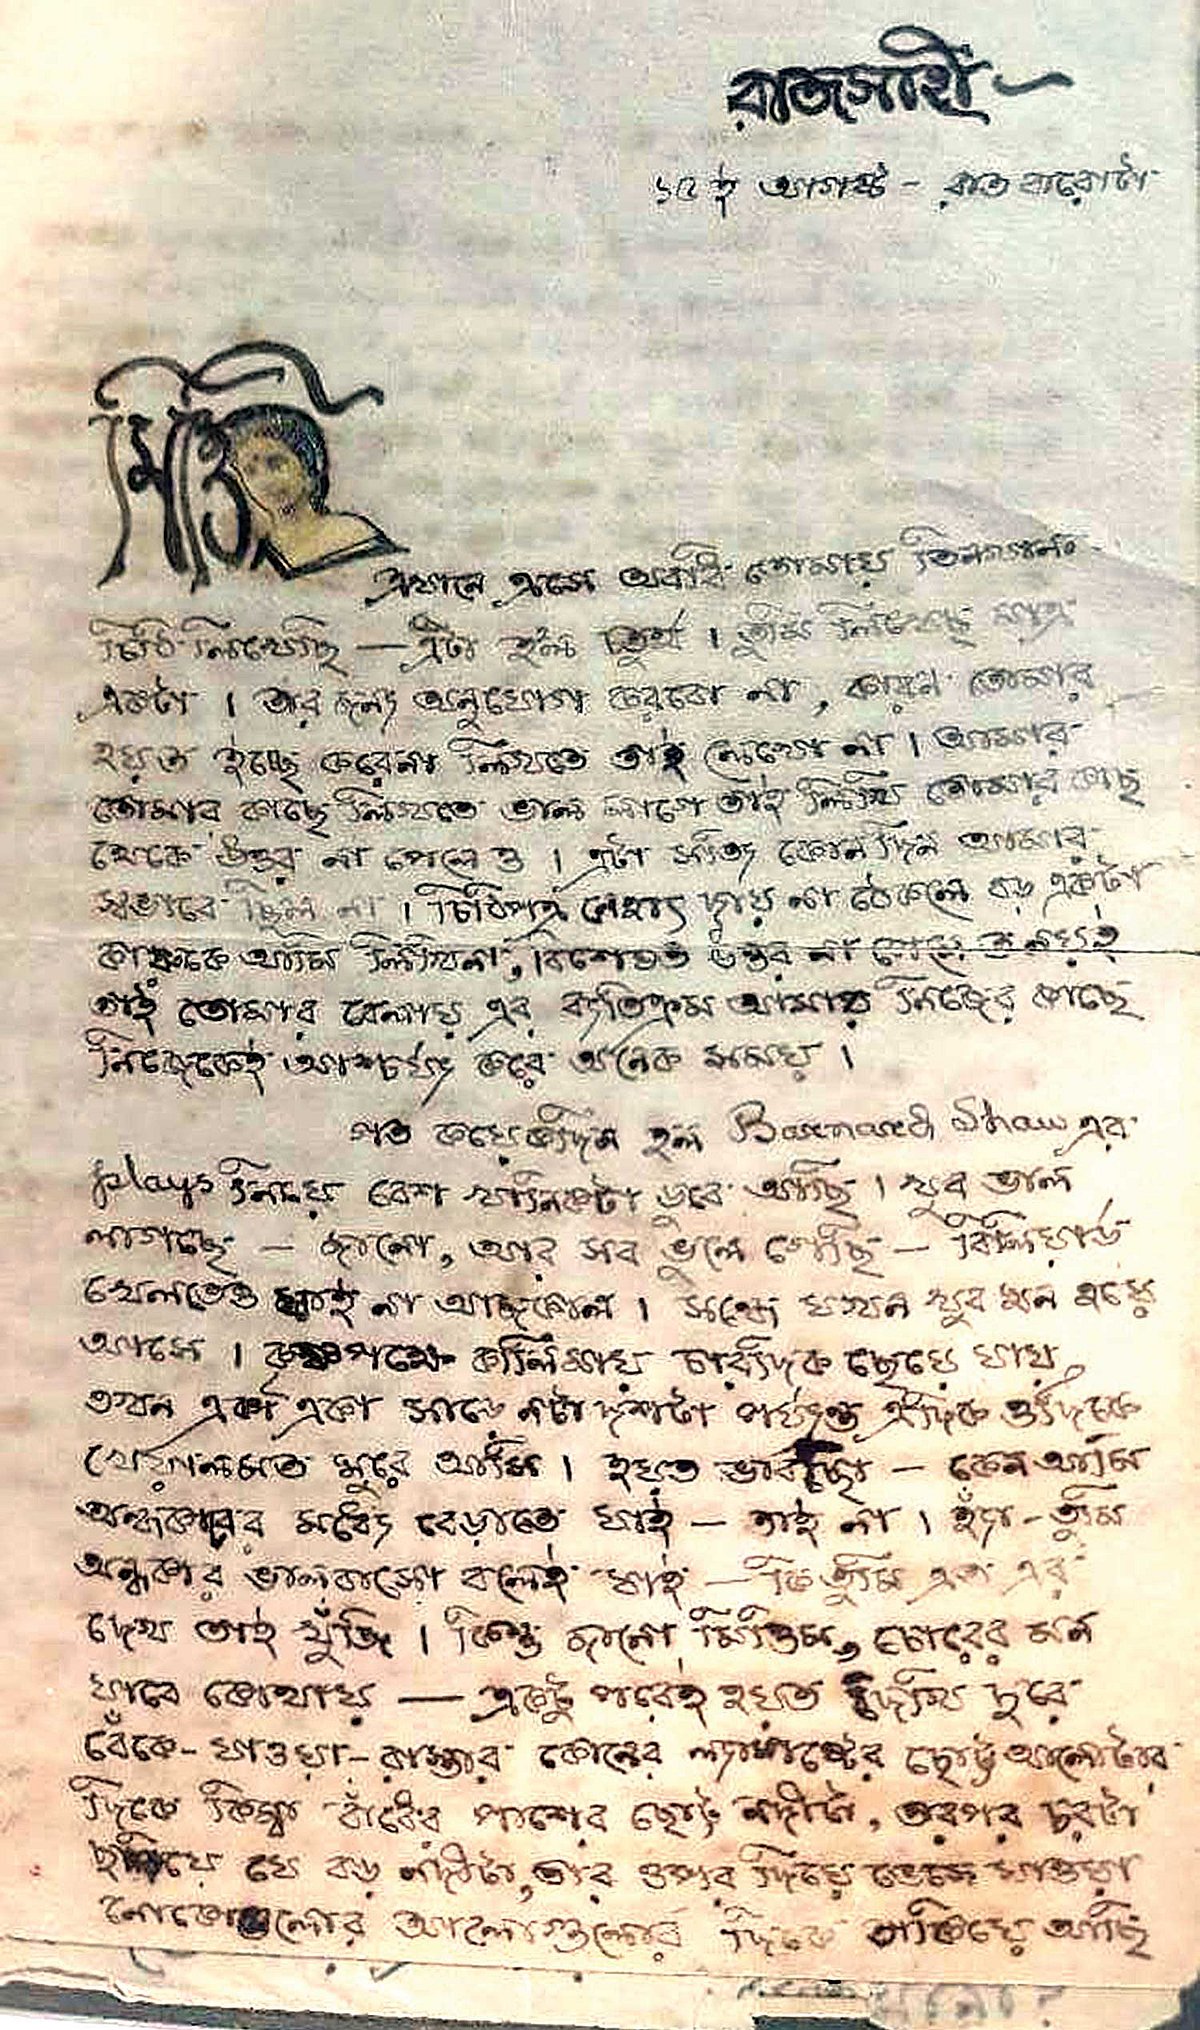 রাজসাহী
১৫ই আগষ্ট - রাত বারোটা
মিতু
এখানে এসে অবধি তোমায় তিনখানা
চিঠি লিখেছি — এটা হল চতুর্থ । তুমি লিখেছ মাত্র
একটা । তার জন্য অনুযোগ করবো না, কারন তোমার
হয়ত ইচ্ছে করেনা লিখতে তাই লেখো না । আমার
তোমার কাছে লিখতে ভাল লাগে তাই লিখি তোমার কাছ
থেকে উত্তর না পেলেও । এটা সত্যি কোনদিন আমার
স্বভাবে ছিল না । চিঠিপত্র নেহাৎ দায় না ঠেকলে বড় একটা
কারুকে আমি লিখিনা, বিশেষত উত্তর না পেলে ত নয়ই
তাই তোমার বেলায় এর ব্যতিক্রম আমায় নিজের কাছে
নিজেকেই আশ্চর্য্য করে অনেক সময় ।
গত কয়েকদিন হল Barnard Shaw এর
plays নিয়ে বেশ খানিকটা ডুবে আছি । খুব ভাল
লাগছে — জানো, আর সব ভুলে গেছি — বিলিয়ার্ড
খেলতেও যাই না আজকাল । সন্ধ্যে যখন খুব ঘন হয়ে
আসে । কৃষ্ণপক্ষে কালিমায় চারিদিক ছেয়ে যায়,
তখন একা একা সাড়ে নটা দশটা পর্য্যন্ত এদিকে ওদিকে
খেয়ালমত ঘুরে আসি । হয়ত ভাবছো — কেন আমি
অন্ধকারের মধ্যে বেড়াতে যাই — তাই না । হ্যাঁ - তুমি
অন্ধকার ভালবাসো বলেই যাই — কি তুমি এত এর
দেখ তাই খুঁজি । কিন্তু জানো মিত্তিম, চোরের মন
যাবে কোথায় — একটু পরেই হয়ত দেখি দূরে
বেঁকে - যাওয়া - রাস্তার কোনের ল্যাম্পপোষ্টের ছোট্ট আলোটার
দিকে কিম্বা বাঁধের পাশের ছোট নদীটা, তারপর চরটা
ছাড়িয়ে যে বড় নদীটা, তার ওপর দিয়ে ভেসে যাওয়া
নৌকোগুলোর আলোগুলোর দিকে তাকিয়ে আছি